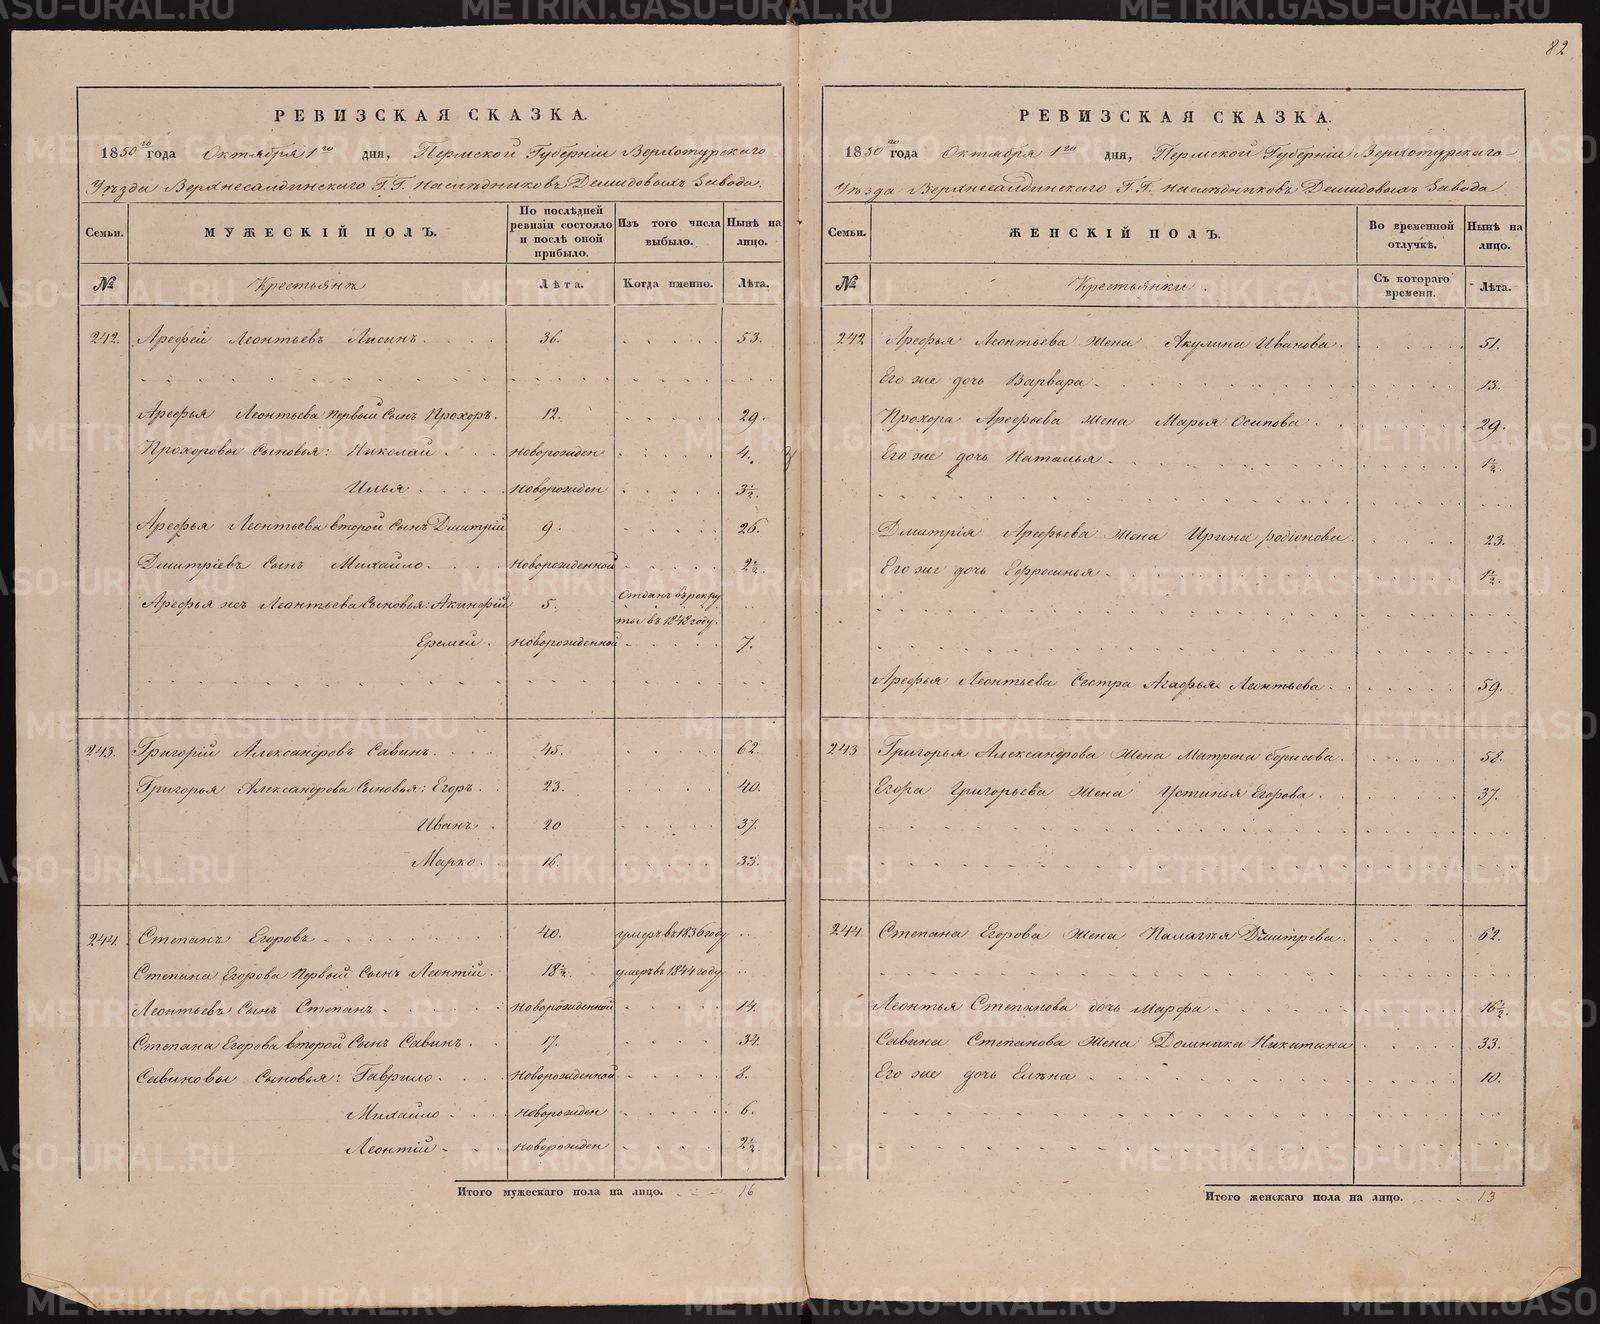 82
РЕВИЗСКАЯ СКАЗКА.
1850го года Октября 1го дня, Пермской Губернiи Верхотурскаго
Уѣзда Верхнесалдинскаго Г.Г. Наслѣдниковъ Демидовыхъ Завода.
Семьи.
МУЖЕСКIЙ ПОЛЪ.
По послѣдней ревизiи состояло и послѣ оной прибыло.
Изъ того числа выбыло.
Нынѣ на лицо.
№
Крестьянѣ
Лѣта.
Когда именно.
Лѣта.
242. Арефей Леонтьевъ Лисинъ. 36. 53.
Арефья Леонтьева первый сынъ Прохоръ. 12. 29.
Прохоровы сыновья: Николай новорожден 4.
Илья новорожден 3½.
Арефья Леонтьева второй сынъ Дмитрiй 9. 26.
Дмитрiевъ сынъ Михайло. новорожденной 2½.
Арефья жъ Леонтьева сыновья: Акинфiй 5. Отданъ въ рекруты въ 1848 году.
Еремей. новорожденной 7.
243. Григорiй Александровъ Савинъ. 45. 62.
Григорья Александрова сыновья: Егоръ. 23. 40.
Иванъ 20 37.
Марко. 16. 33.
244. Степанъ Егоровъ 40. умеръ въ 1836 году
Степана Егорова первый сынъ Леонтiй. 18½. умеръ въ 1844 году
Леонтьевъ сынъ Степанъ новорожденной 14.
Степана Егорова второй сынъ Савинъ. 17. 34.
Савиновы сыновья: Гаврило. новорожденной 8.
Михайло новорожден 6.
Леонтiй новорожден 2½.
Итого мужескаго пола на лицо. 16
РЕВИЗСКАЯ СКАЗКА.
1850го года Октября 1го дня, Пермской Губернiи Верхотурскаго
Уѣзда Верхнесалдинскаго Г.Г. Наслѣдниковъ Демидовыхъ Завода
Семьи.
ЖЕНСКIЙ ПОЛЪ.
Во временной отлучкѣ.
Нынѣ на лицо.
№
Крестьянки.
Съ котораго времени.
Лѣта.
242 Арефья Леонтьева жена Акулина Иванова. 51.
Его же дочь Варвара 13.
Прохора Арефьева жена Марья Осипова. 29.
Его же дочь Наталья. 1½.
Дмитрiя Арефьева жена Ирина Родiонова. 23.
Его же дочь Ефросинья. 1½.
Арефья Леонтьева сестра Агафья Леонтьева. 59.
243 Григорья Александрова жена Матрена Борисова. 58.
Егора Григорьева жена Устинья Егорова. 37.
244. Степана Егорова жена Палагѣя Дмитрева. 62.
Леонтья Степанова дочь Марфа. 16½.
Савина Степанова жена Домника Никитина 33.
Его же дочь Елѣна 10.
Итого женскаго пола на лицо. 13
METRIKI.GASO-URAL.RU